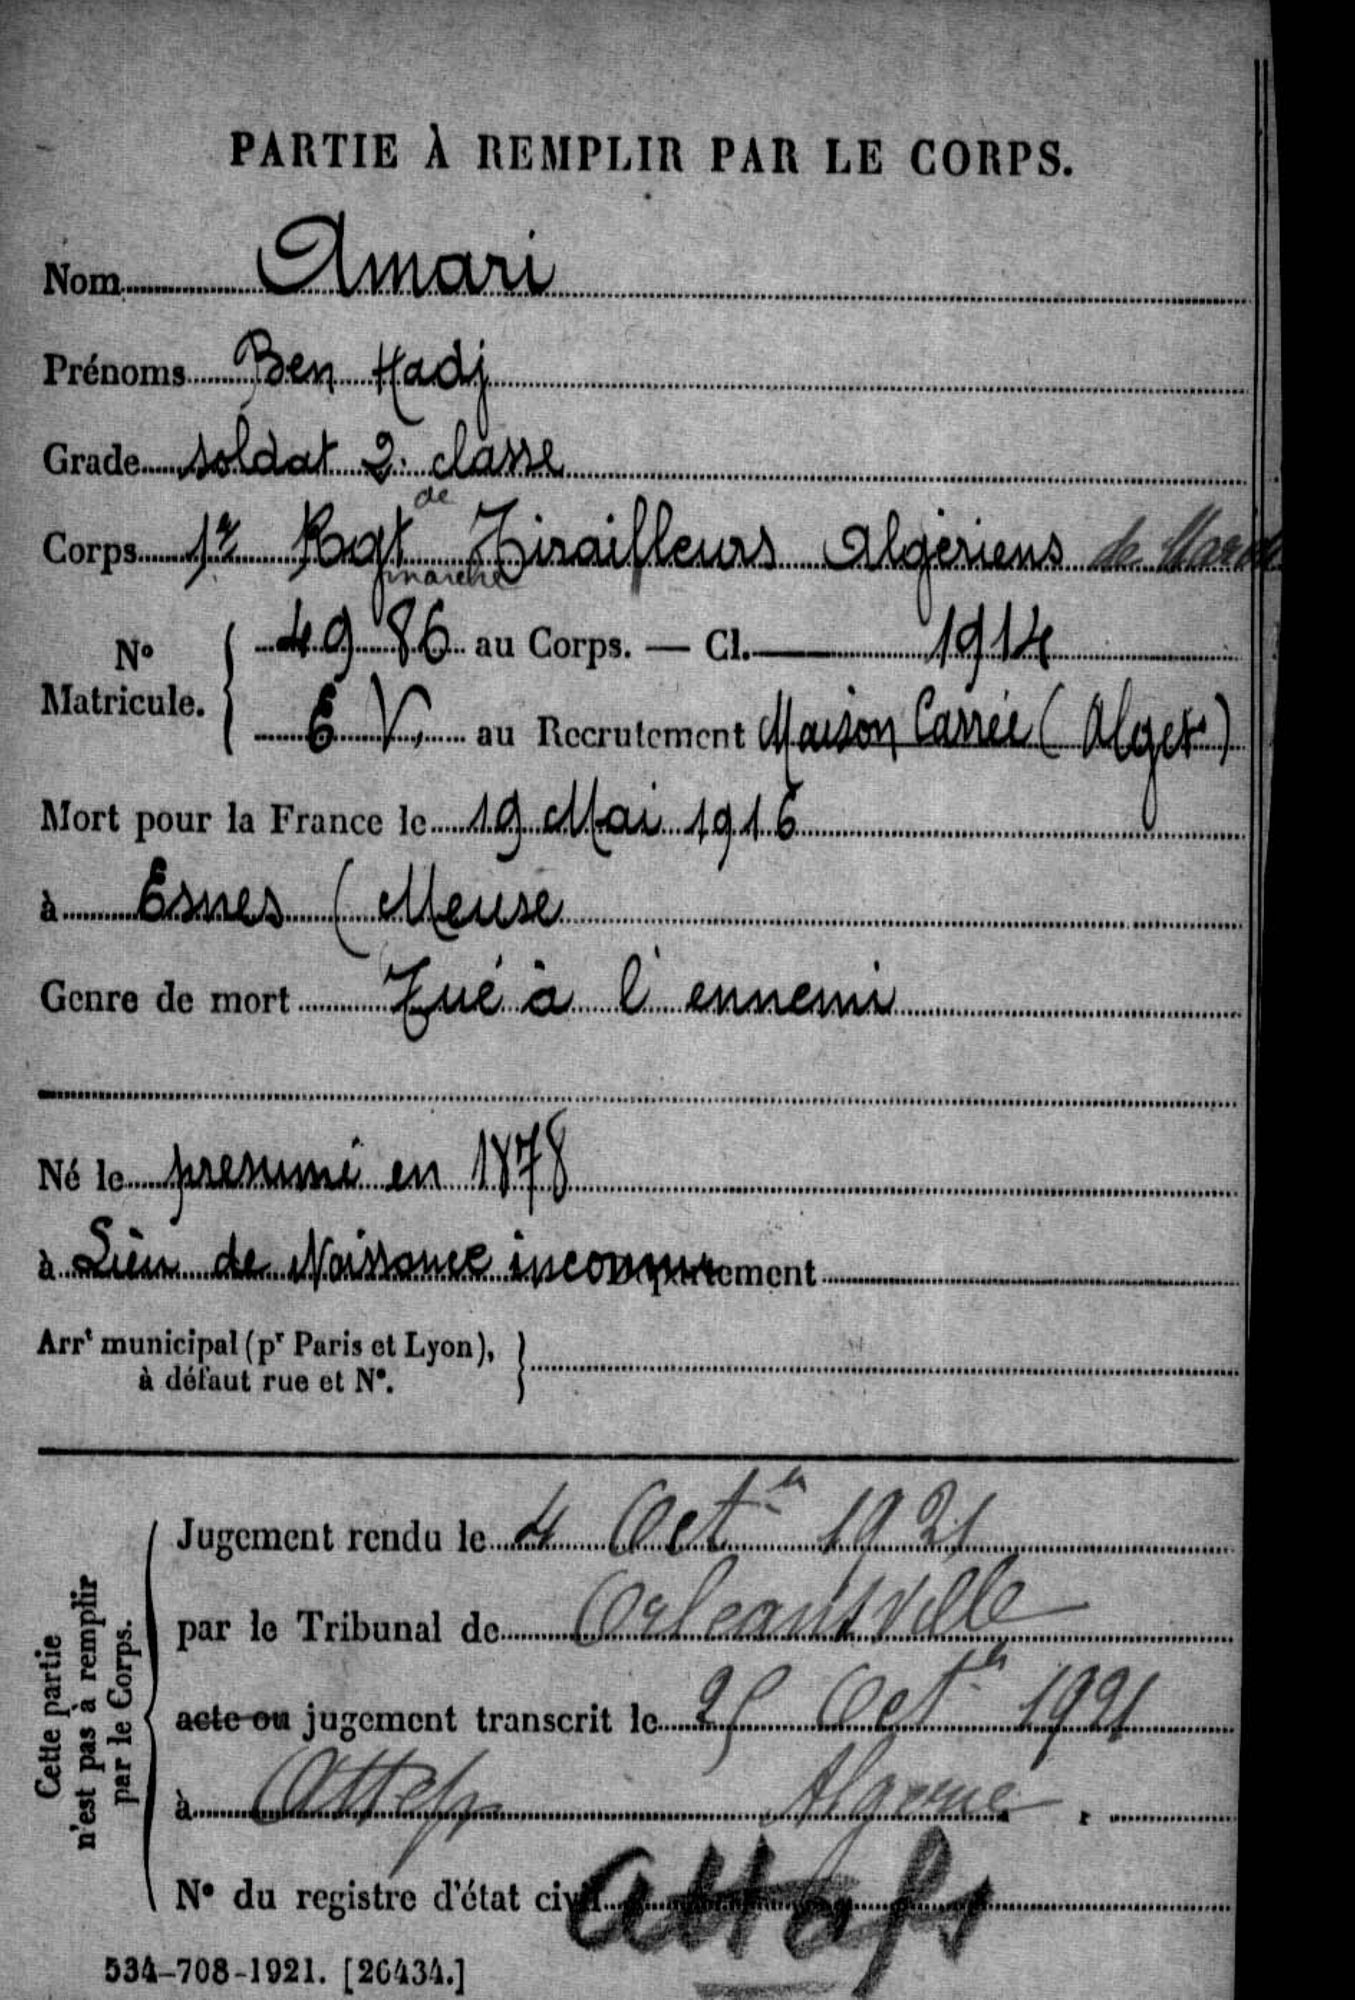 PARTIE À REMPLIR PAR LE CORPS.
Nom Amari
Prénoms Ben Hadj
Grade soldat 2. classe
Corps 1er Rgt de marche Tirailleurs Algériens de Marche
N° Matricule. 4986 au Corps. — Cl. 1914
6 V, au Recrutement Maison Carrée (Alger)
Mort pour la France le 19 Mai 1916
à Esnes (Meuse
Genre de mort Tué à l'ennemi
Né le présumé en 1878
à Lieu de Naissance inconnu Département
Arrt municipal (pr Paris et Lyon),
à défaut rue et N°.
Cette partie
n'est pas à remplir
par le Corps.
Jugement rendu le 4 Oct 1921
par le Tribunal de Orleansville
acte ou jugement transcrit le 25 Oct 1921
à Attafs Algerie
N° du registre d'état civil
Attafs
534-708-1921. [26434.]